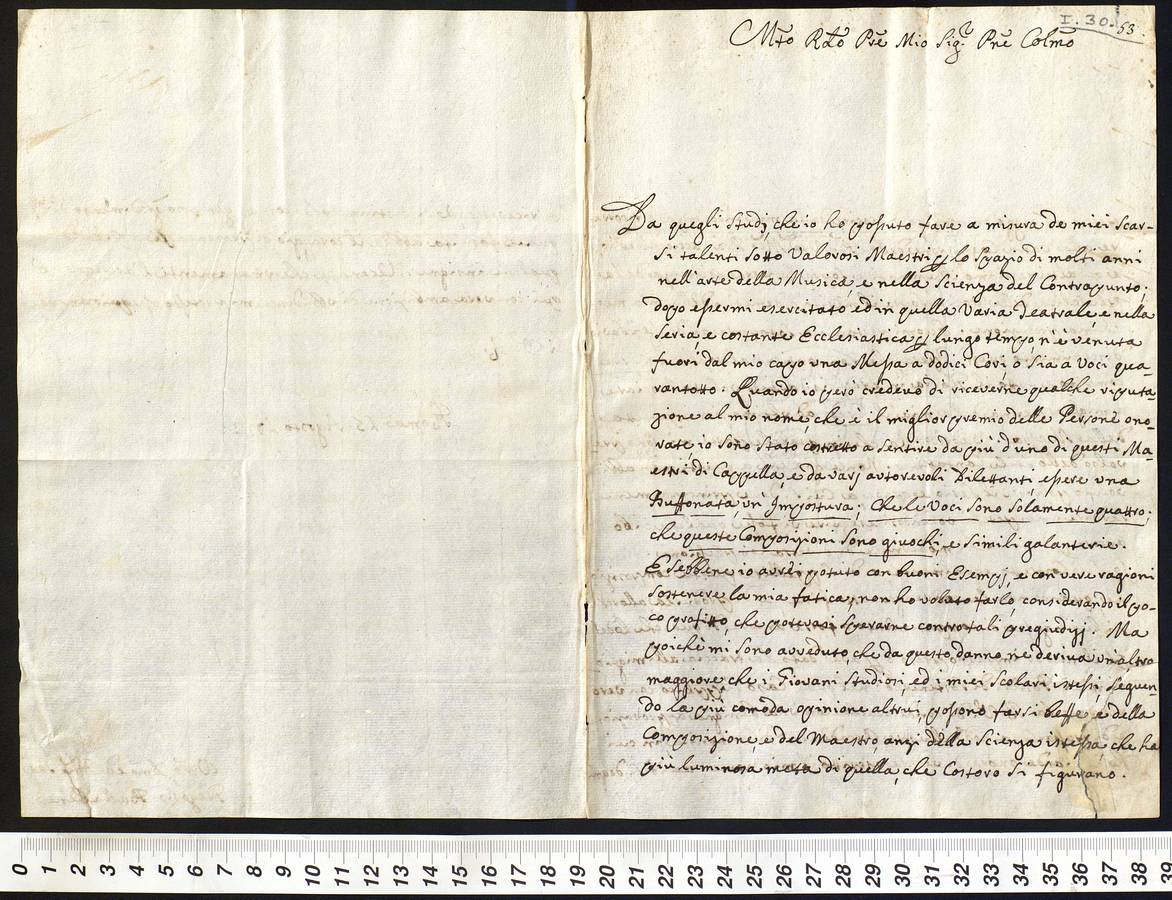 I. 30. 53.
Mto Rdo Pre Mio Sigr Pne Colmo
Da quegli Studj, che io ho possuto fare a misura de miei scar-
si talenti sotto Valorosi Maestri p lo spazio di molti anni
nell'arte della Musica, e nella Scienza del Contrappunto;
dopo essermi esercitato ed in quella Varia Teatrale, e nella
Seria e costante Ecclesiastica p lungo tempo, n'è venuta
fuori dal mio capo una Messa a dodici Cori, o sia a Voci qua-
rantotto. Quando io però credevo di riceverne qualche riputa-
zione al mio nome, che è il miglior premio delle Persone ono-
rate, io sono stato costretto a sentire da più d'uno di questi Ma-
estri di Cappella, e da varj autorevoli Dilettanti, essere una
Buffonata, un' Impostura; Che le Voci sono solamente quattro;
che queste Composizioni sono giuochi, e simili galanterie.
E sebbene io avrei potuto con buoni Esempj, e con vere ragioni
sostenere la mia fatica, non ho voluto farlo, considerando il po-
co profitto, che potevasi sperarne contro tali pregiudizj. Ma
poichè mi sono avveduto, che da questo danno, ne deriva un'altro
maggiore che i Giovani Studiosi, ed i miei Scolari istessi, seguen-
do la più comoda opinione altrui, possono farsi beffe, e della
Composizione, e del Maestro, anzi della Scienza istessa, che ha
più luminosa meta di quella, che Costoro si figurano.
0 1 2 3 4 5 6 7 8 9 10 11 12 13 14 15 16 17 18 19 20 21 22 23 24 25 26 27 28 29 30 31 32 33 34 35 36 37 38 39